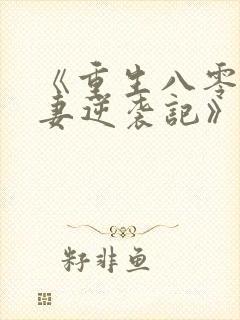 《重生八零
妻逆袭記》
籽非鱼